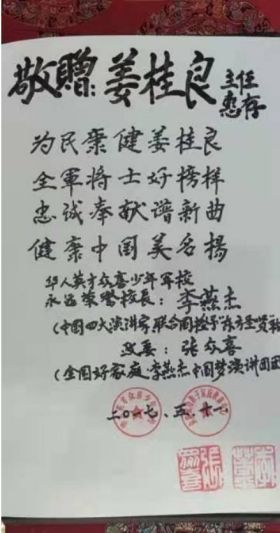 敬赠:姜桂良主任
惠存
为民康健姜桂良
全軍将士好榜样
忠诚奉献谱新曲
健康中国美名揚
华人英才众喜少年军校
永远荣誉校長:李燕杰
(中国四大演讲家联合国授予"东方圣贤
政委:张众喜
(全国好家庭李燕杰中国梦演讲团团
二〇一七、五、十一